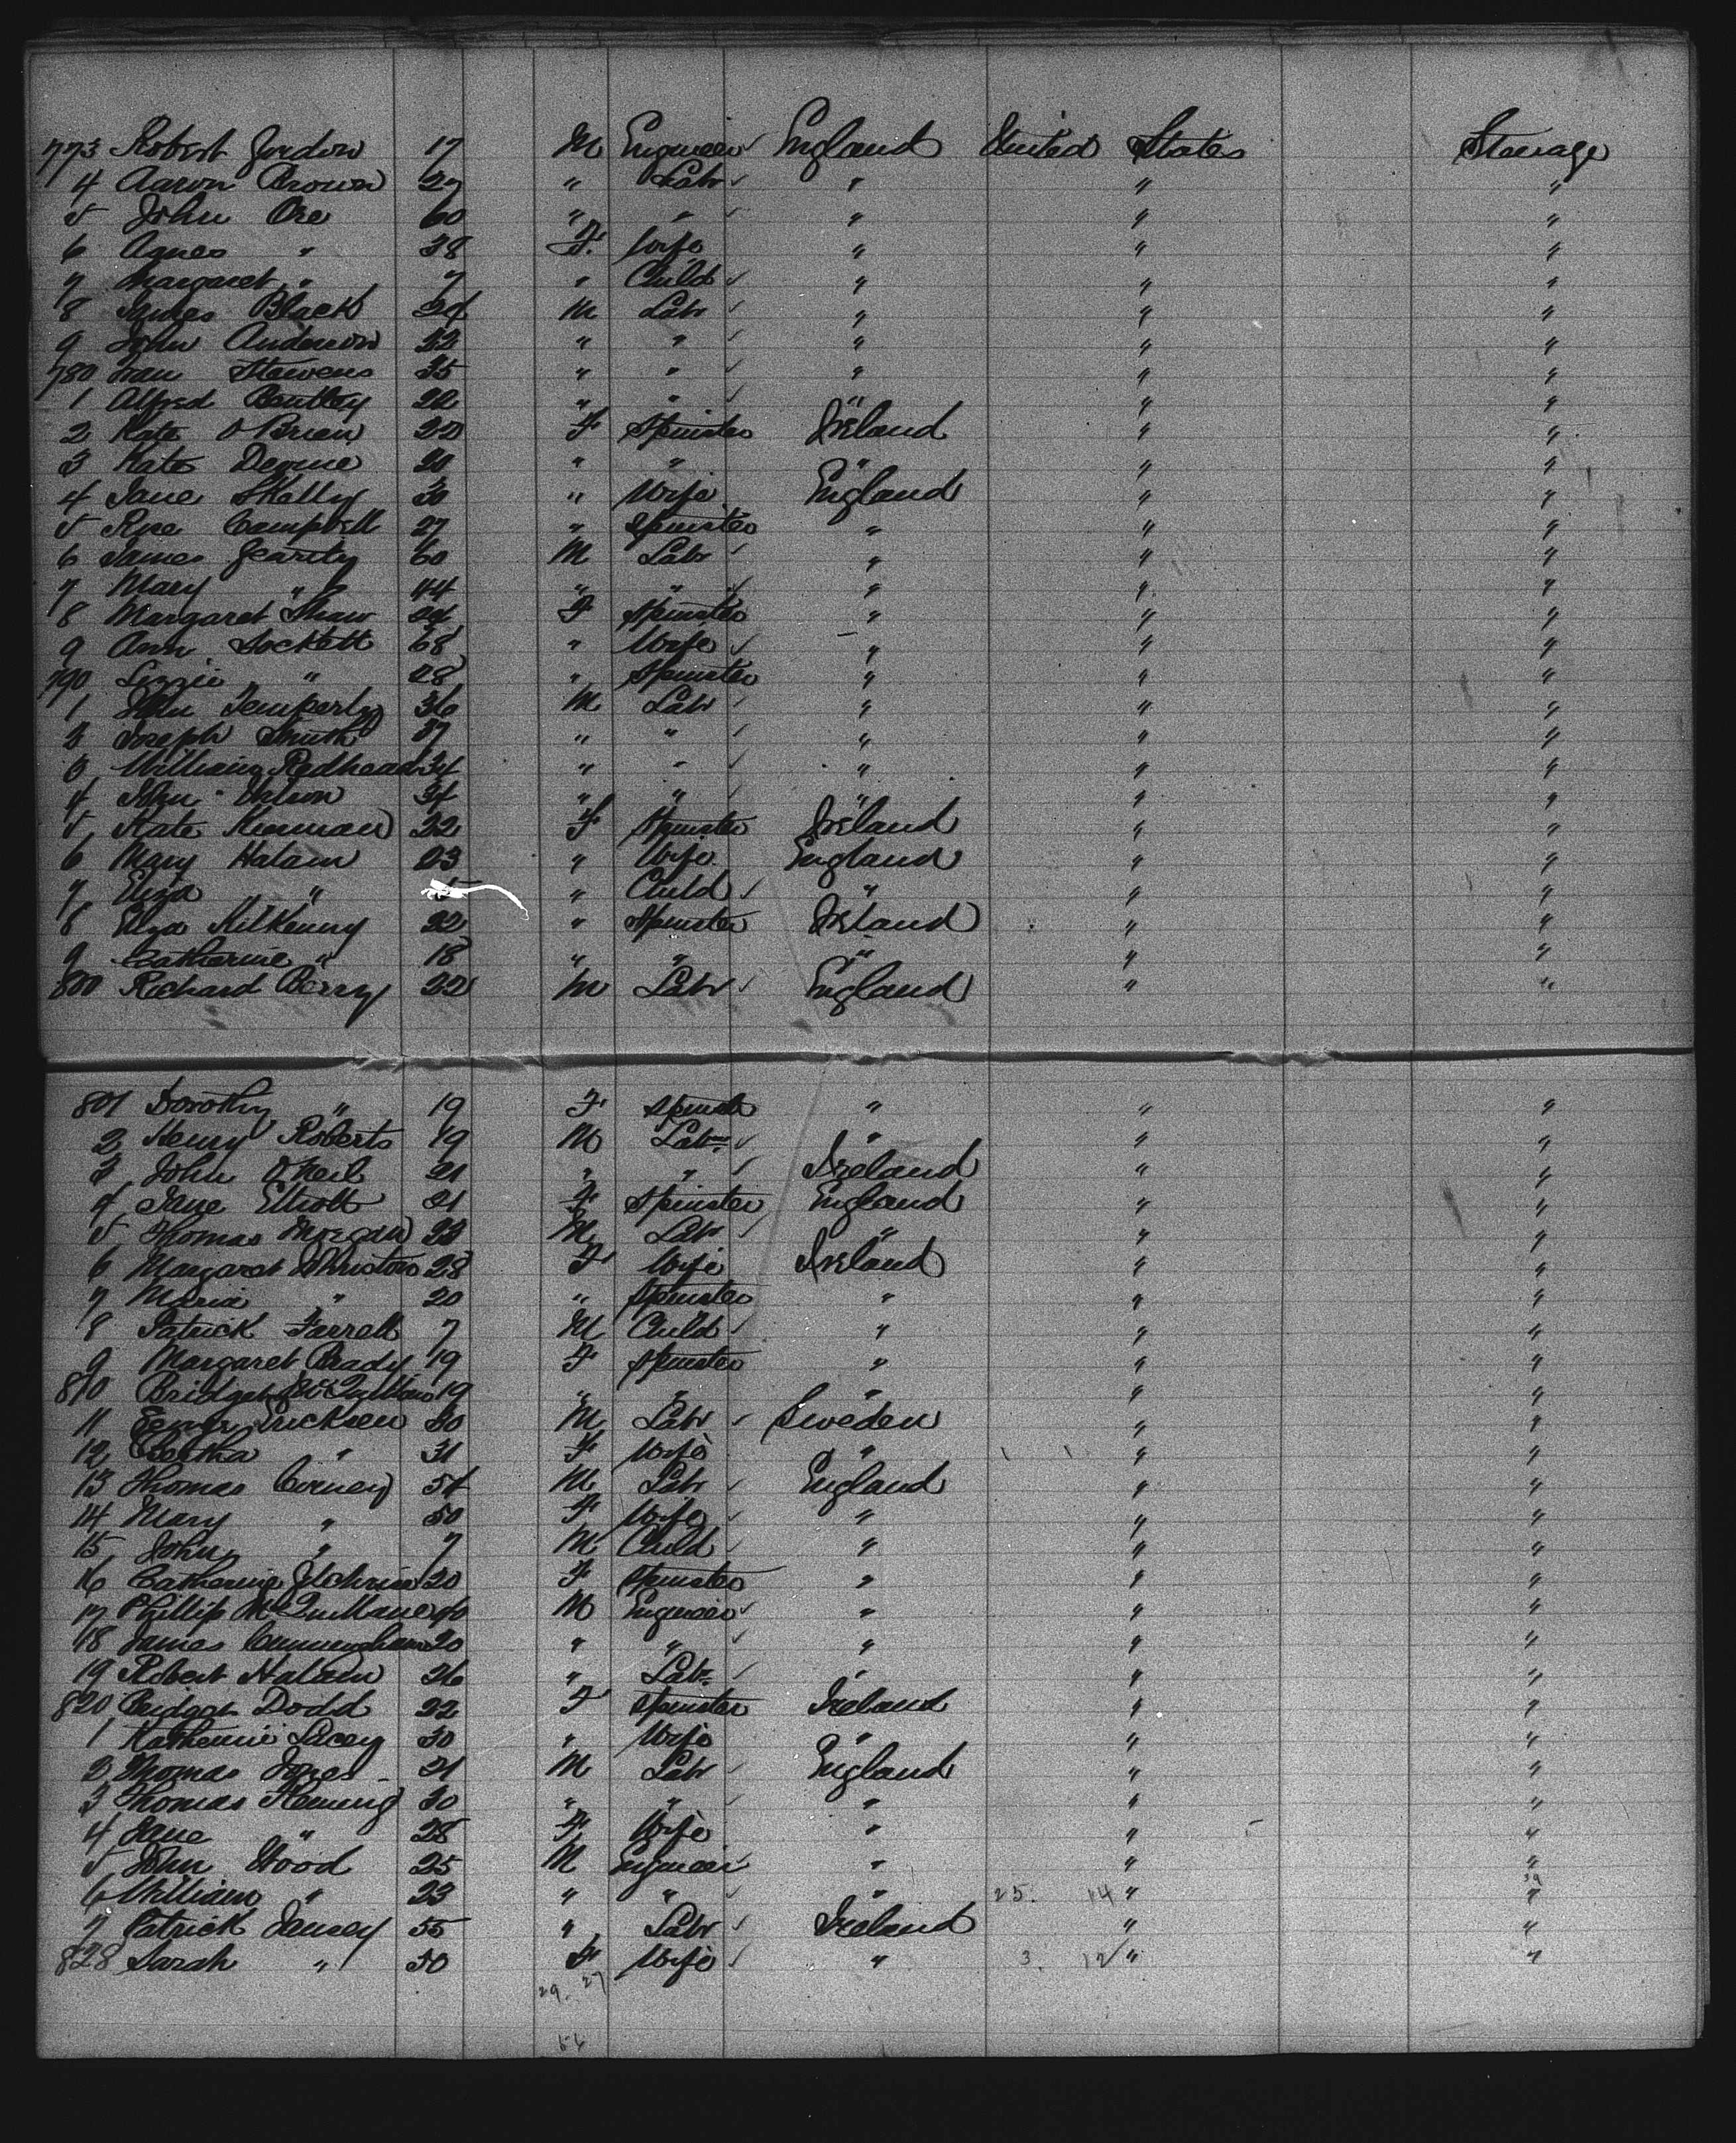 773 Robert Jordon 17 M Engineer England United States Steerage
4 Aaron Brown 27 " Labr " " "
5 John Ore 60 " " " " "
6 Agnes " 38 F. Wife " " "
7 Margaret " 7 " Child " " "
8 James Black 24 M Labr " " "
9 John Anderson 22 " " " " "
780 Stevens 35 " " " " "
1 Alfred Bentley 22 " " " " "
2 Kate O'Brien 22 F Spinster Ireland " "
3 Kate 20 " " " " "
4 Jane Skelly 30 " Wife England " "
5 Rose Campbell 27 " Spinster " " "
6 James Gearity 60 M Labr " " "
7 Mary " 44 " " " " "
8 Margaret Shaw 24 F Spinster " " "
9 Ann Lockett 68 " Wife " " "
790 Lizzie " 28 " Spinster " " "
1 John Temperly 36 M Labr " " "
2 Joseph Smith 37 " " " " "
3 William Redhead 34 " " " " "
4 John 34 " " " " "
5 Kate Kiernan 22 F Spinster Ireland " "
6 Mary Halam 23 " Wife England " "
7 Eliza " " Child " " "
8 Eliza Kilkenny 22 " Spinster Ireland " "
9 Catherine " 18 " " " " "
800 Richard Berry 22 M Labr England " "
801 Dorothy " 19 F Spinster " " "
2 Henry Roberts 19 M Labr " " "
3 John O'Neil 21 " " Ireland " "
4 Jane Elliott 21 F Spinster England " "
5 Thomas Morgan 23 M Labr " " "
6 Margaret Johnston 28 F Wife Ireland " "
7 Maria " 20 " Spinster " " "
8 Patrick Farrell 7 M Child " " "
9 Margaret Brady 19 F Spinster " " "
810 Bridget McQuillan 19 " " " " "
11 Ericksen 30 M Labr Sweden " "
12 Bertha " 31 F Wife " " "
13 Thomas Corney 54 M Labr England " "
14 Mary " 50 F Wife " " "
15 John " 7 M Child " " "
16 Catherine 20 F Spinster " " "
17 Phillip McQuillane 40 M Engineer " " "
18 James Cunningham 20 " " " " "
19 Robert Halam 26 " Labr " " "
820 Bridget Dodd 22 F Spinster Ireland " "
1 Katherine Lacey 30 " Wife " " "
2 Thomas Jones 21 M Labr England " "
3 Thomas Fleming 30 " " " " "
4 Jane " 28 F Wife " " "
5 John Wood 25 M Engineer " " "
6 William " 23 " " " 25. 14 " "
7 Patrick 55 " Labr Ireland " "
828 Sarah " 50 F Wife " 3. 12 " "
29. 27
56